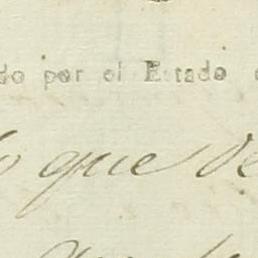 do por el Estado
lo que de